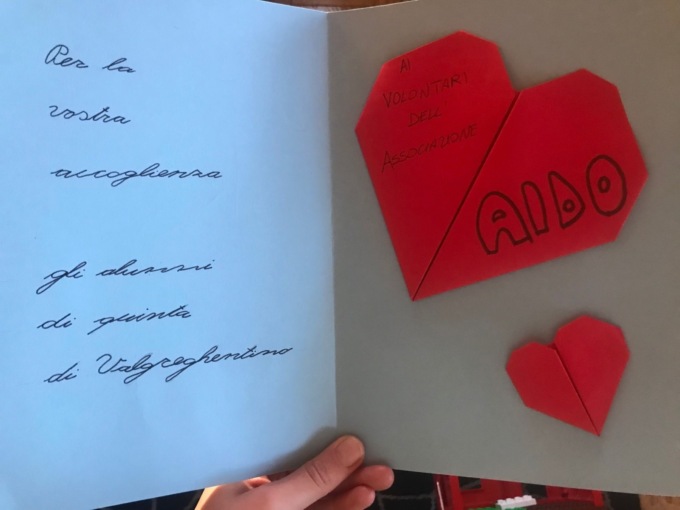 Per la
vostra
accoglienza
gli alunni
di quinta
di Valgreghentino
AI
VOLONTARI
DELL
ASSOCIAZIONE
AIDO